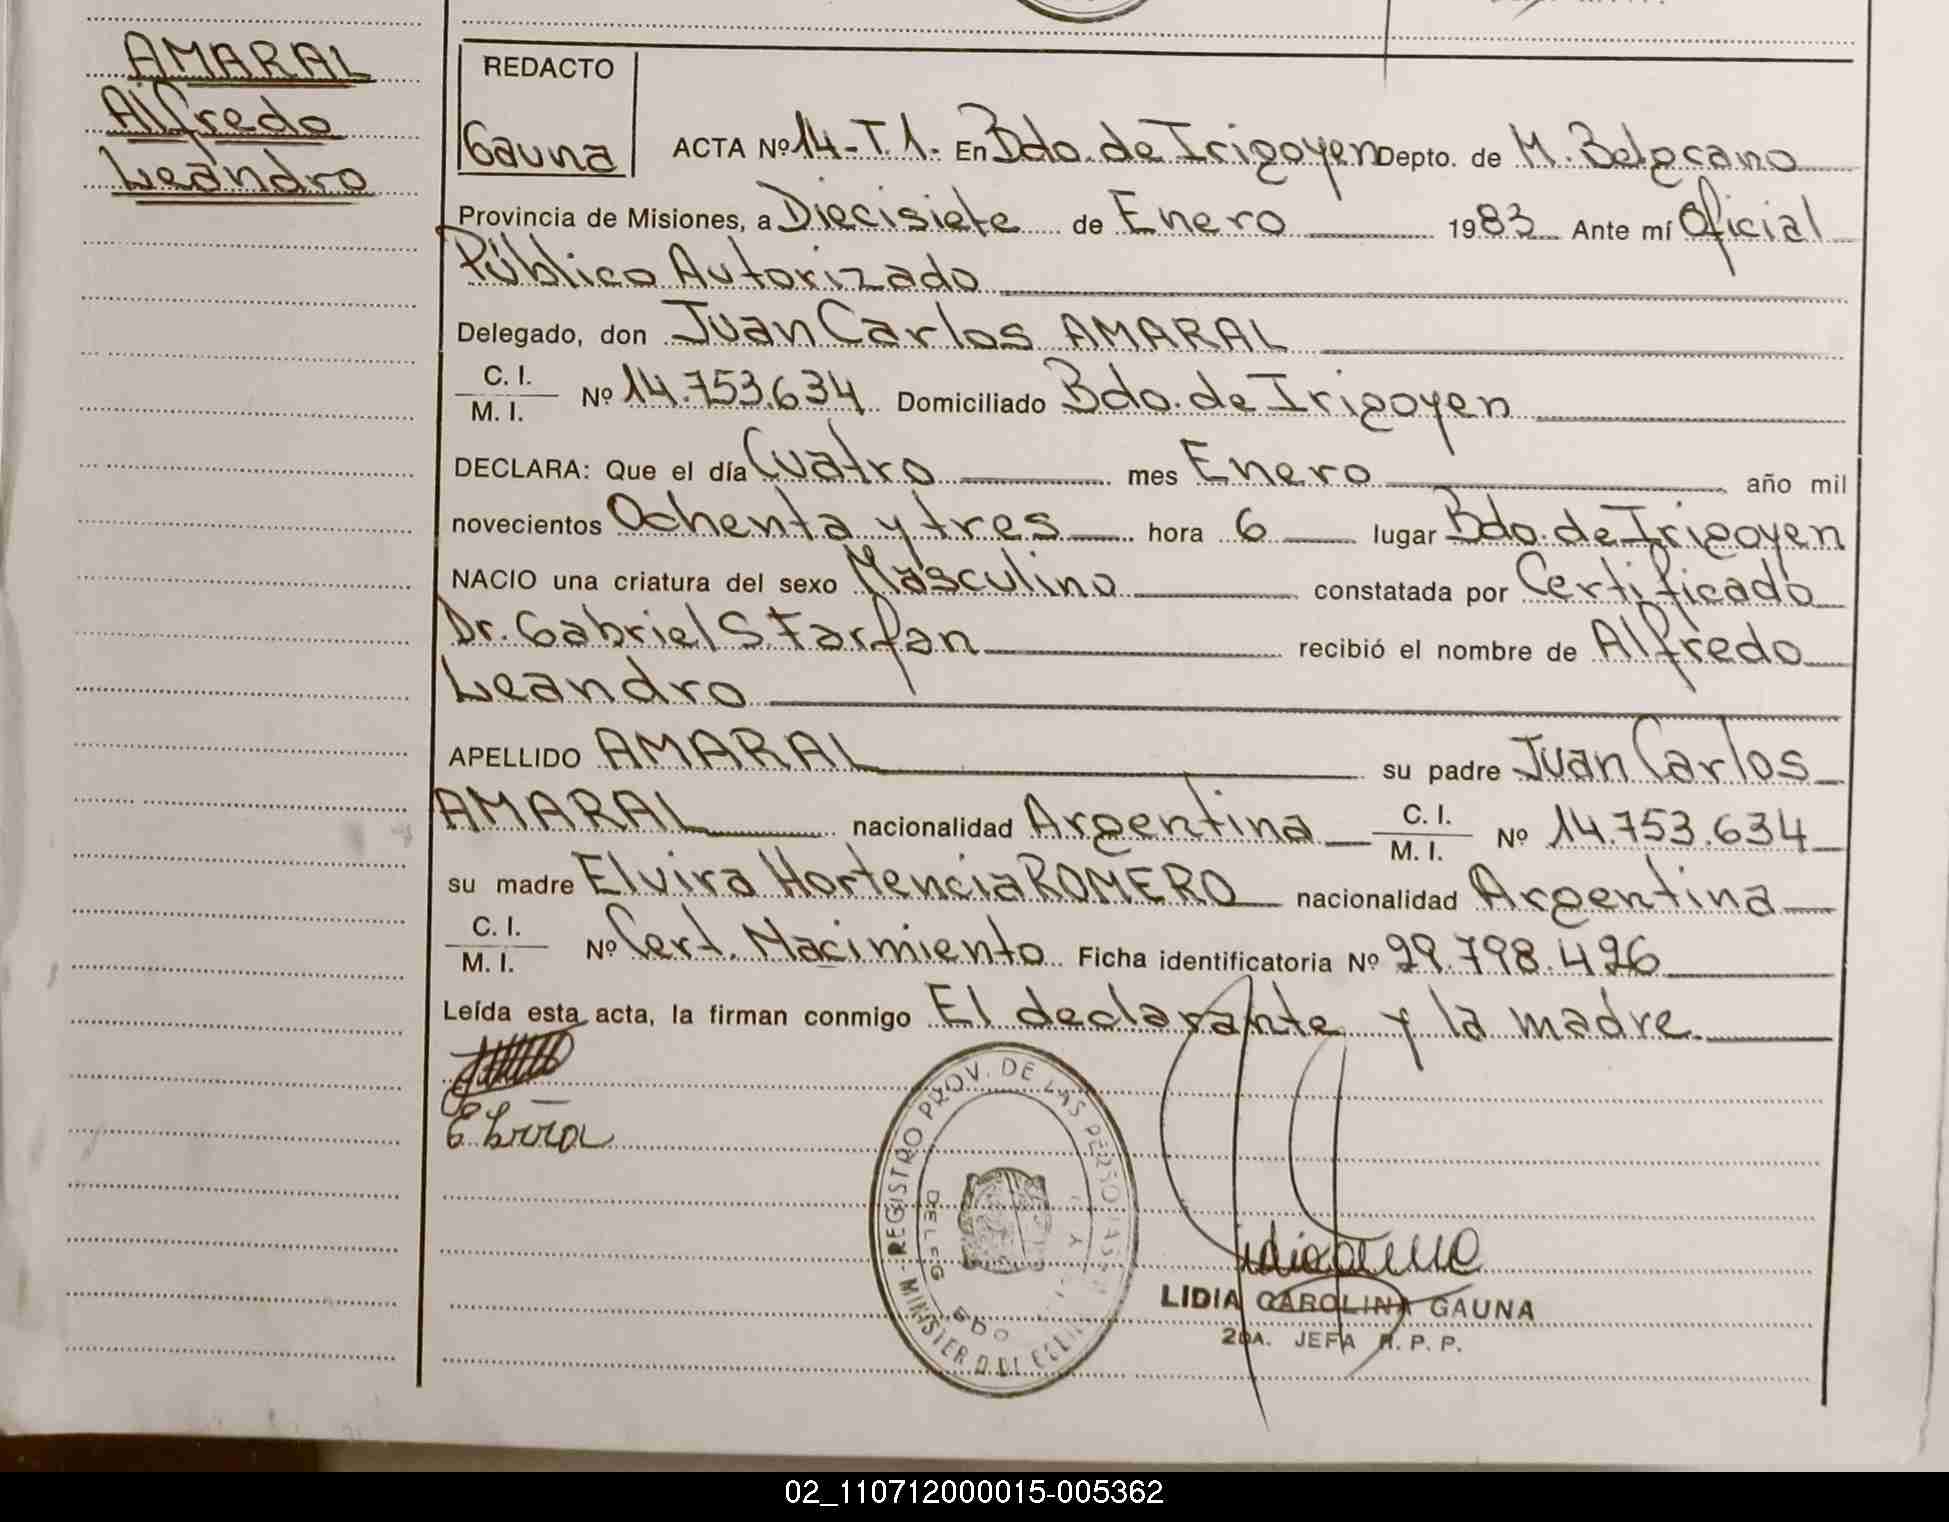 AMARAL
Alfredo
Leandro
REDACTO
Gauna
ACTA Nº 14-T.1. En Bdo. de Irigoyen Depto. de M. Belgrano
Provincia de Misiones, a Diecisiete de Enero 1983 Ante mí Oficial
Público Autorizado
Delegado, don Juan Carlos AMARAL
C. I.
M. I. Nº 14.753.634 Domiciliado Bdo. de Irigoyen
DECLARA: Que el día Cuatro mes Enero año mil
novecientos Ochenta y tres hora 6 lugar Bdo. de Irigoyen
NACIO una criatura del sexo Masculino constatada por Certificado
Dr. Gabriel S. Farfan recibió el nombre de Alfredo
Leandro
APELLIDO AMARAL su padre Juan Carlos
AMARAL nacionalidad Argentina C. I. M. I. Nº 14.753.634
su madre Elvira Hortencia ROMERO nacionalidad Argentina
C. I.
M. I. Nº Cert. Nacimiento Ficha identificatoria Nº 29.798.426
Leída esta acta, la firman conmigo El declarante y la madre
REGISTRO PROV. DE LAS PERSONAS
DELEG BDO
LIDIA CAROLINA GAUNA
2DA. JEFA R. P. P.
02_110712000015-005362